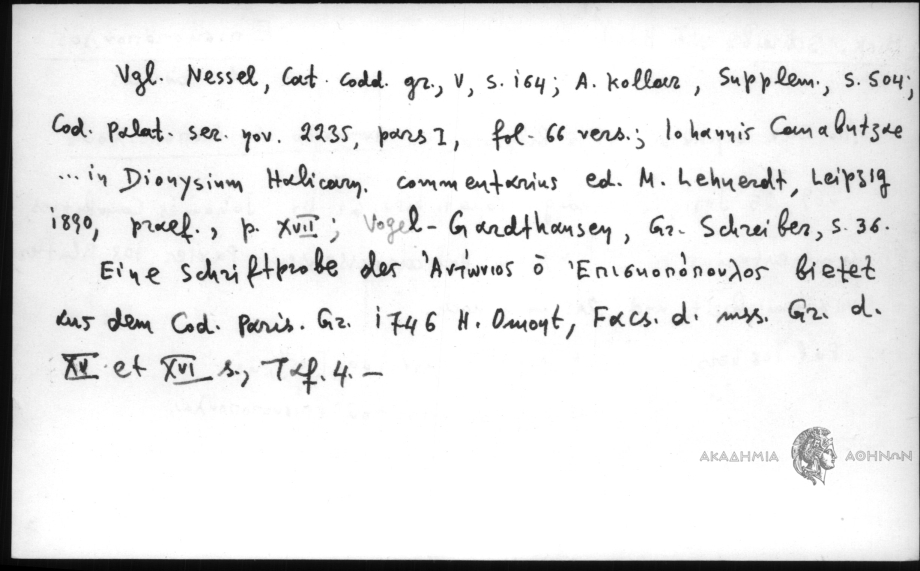 Vgl. Nessel, Cat. codd. gr., V, S. 164; A. Kollar, Supplem., S. 504;
Cod. Palat. ser. nov. 2235, pars I, fol. 66 vers.; Iohannis Canabutzae
... in Dionysium Halicarn. commentarius ed. M. Lehnerdt, Leipzig
1890, praef., p. XVII; Vogel-Gardthausen, Gr. Schreiber, S. 36.
Eine Schriftprobe des Ἀντώνιος ὁ Ἐπισκοπόπουλος bietet
aus dem Cod. Paris. Gr. 1746 H. Omont, Facs. d. mss. Gr. d.
XV et XVI s., Taf. 4. —
ΑΚΑΔΗΜΙΑ ΑΘΗΝΩΝ